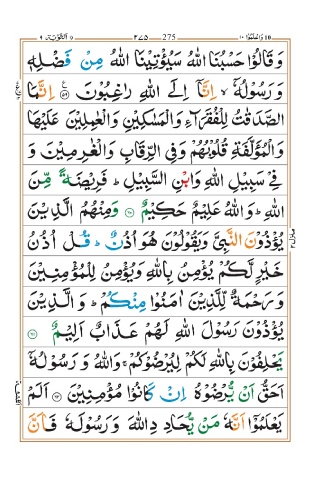 واعلموا ١٠ 275 ٢٧٥ التوبة ٩
وَ قَالُوْا حَسْبُنَا اللّٰهُ سَيُؤْتِيْنَا اللّٰهُ مِنْ فَضْلِهٖ
وَ رَسُوْلُهٗۤ ۙ اِنَّاۤ اِلَى اللّٰهِ رٰغِبُوْنَ ۟ ﴿٥٩﴾ اِنَّمَا
الصَّدَقٰتُ لِلْفُقَرَآءِ وَ الْمَسٰكِيْنِ وَ الْعٰمِلِيْنَ عَلَيْهَا
وَ الْمُؤَلَّفَةِ قُلُوْبُهُمْ وَ فِي الرِّقَابِ وَ الْغٰرِمِيْنَ وَ
فِيْ سَبِيْلِ اللّٰهِ وَ ابْنِ السَّبِيْلِ ؕ فَرِيْضَةً مِّنَ
اللّٰهِ ؕ وَ اللّٰهُ عَلِيْمٌ حَكِيْمٌ ﴿٦٠﴾ وَ مِنْهُمُ الَّذِيْنَ
يُؤْذُوْنَ النَّبِيَّ وَ يَقُوْلُوْنَ هُوَ اُذُنٌ ؕ قُلْ اُذُنُ
خَيْرٍ لَّكُمْ يُؤْمِنُ بِاللّٰهِ وَ يُؤْمِنُ لِلْمُؤْمِنِيْنَ
وَ رَحْمَةٌ لِّلَّذِيْنَ اٰمَنُوْا مِنْكُمْ ؕ وَ الَّذِيْنَ
يُؤْذُوْنَ رَسُوْلَ اللّٰهِ لَهُمْ عَذَابٌ اَلِيْمٌ ﴿٦١﴾
يَحْلِفُوْنَ بِاللّٰهِ لَكُمْ لِيُرْضُوْكُمْ ۚ وَ اللّٰهُ وَ رَسُوْلُهٗۤ
اَحَقُّ اَنْ يُّرْضُوْهُ اِنْ كَانُوْا مُؤْمِنِيْنَ ﴿٦٢﴾ اَلَمْ
يَعْلَمُوْۤا اَنَّهٗ مَنْ يُّحَادِدِ اللّٰهَ وَ رَسُوْلَهٗ فَاَنَّ